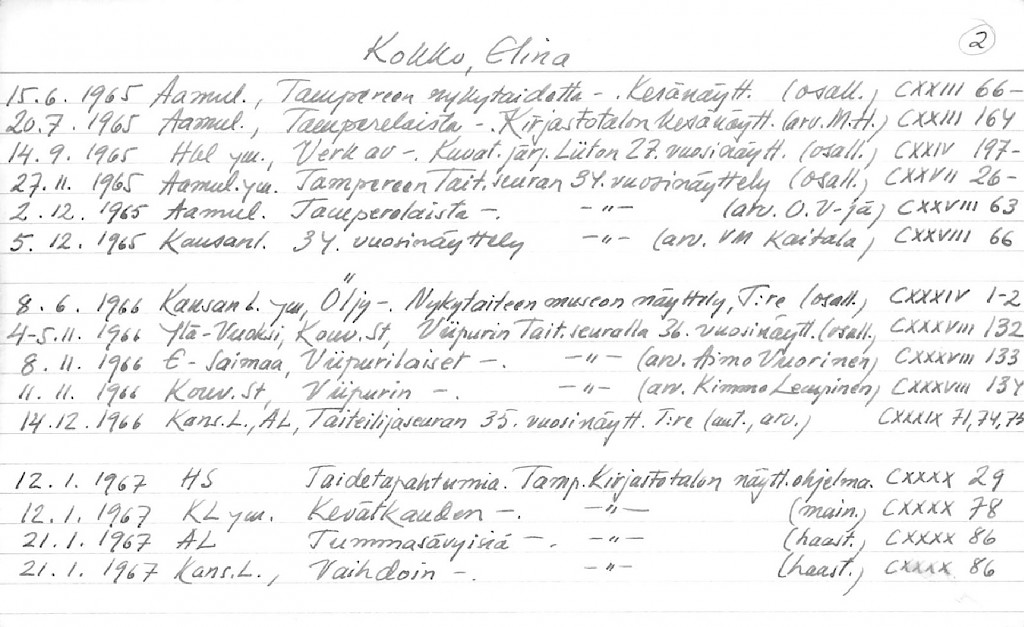 2
Kokko, Elina
15.6. 1965 Aamul., Tampereen nykytaidetta -. Kesänäytt. (osall.) CXXIII 66-
20.7. 1965 Aamul., Tamperelaista -. Kirjastotalon kesänäytt. (arv. M.H.) CXXIII 164
14.9. 1965 Hbl ym., Verk av -. Kuvat. järj. Liiton 27. vuosinäytt. (osall.) CXXIV 197-
27.11. 1965 Aamul. ym. Tampereen Tait. seuran 34. vuosinäyttely (osall.) CXXVII 26-
2.12. 1965 Aamul. Tamperelaista -. -"- (arv. O.V-jä) CXXVIII 63
5.12. 1965 Kansanl. 34. vuosinäyttely -"- (arv. VM Kaitala) CXXVIII 66
8.6. 1966 Kansan L. ym, Öljy -. Nykytaiteen museon näyttely, T:re (osall.) CXXXIV 1-2
4-5.11. 1966 Ylä-Vuoksi, Kouv. St, Viipurin Tait. seuralla 36. vuosinäytt. (osall.) CXXXVIII 132
8.11. 1966 E-Saimaa, Viipurilaiset -. -"- (arv. Aimo Vuorinen) CXXXVIII 133
11.11. 1966 Kouv. St, Viipurin -. -"- (arv. Kimmo Lempinen) CXXXVIII 134
14.12. 1966 Kans. L., AL, Taiteilijaseuran 35. vuosinäytt. T:re (aut., arv.) CXXXIX 71, 74, 75
12.1. 1967 HS Taidetapahtumia. Tamp. Kirjastotalon näytt. ohjelma. CXXXX 29
12.1. 1967 KL ym. Kevätkauden -. -"- (main.) CXXXX 78
21.1. 1967 AL Tummasävyisiä -. -"- (haast.) CXXXX 86
21.1. 1967 Kans. L., Vaihdoin -. -"- (haast.) CXXXX 86